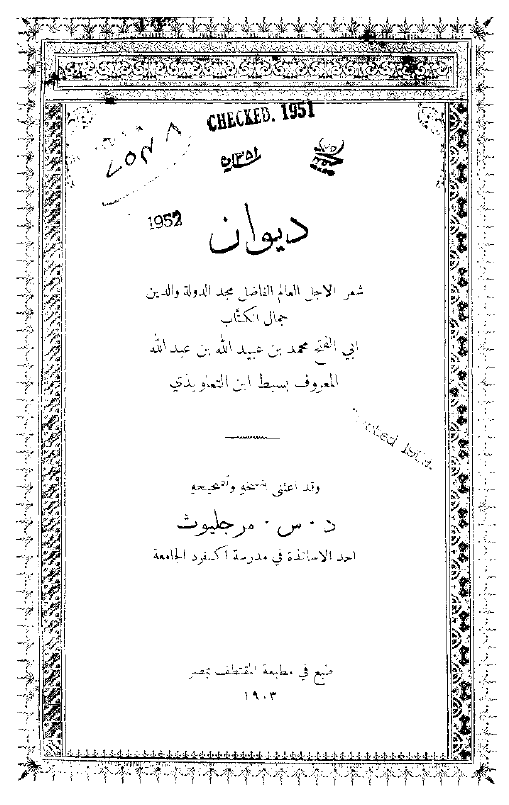 CHECKED. 1951
1952
ديوان
شعر الاجل العالم الفاضل مجد الدولة والدين
جمال الكتّاب
ابي الفتح محمد بن عبيد الله بن عبد الله
المعروف بسبط ابن التعاويذي
وقد اعتنى بنسخهِ وتصحيحهِ
د . س . مرجليوث
احد الاساتذة في مدرسة اكسفرد الجامعة
طبع في مطبعة المقتطف بمصر
١٩٠٣